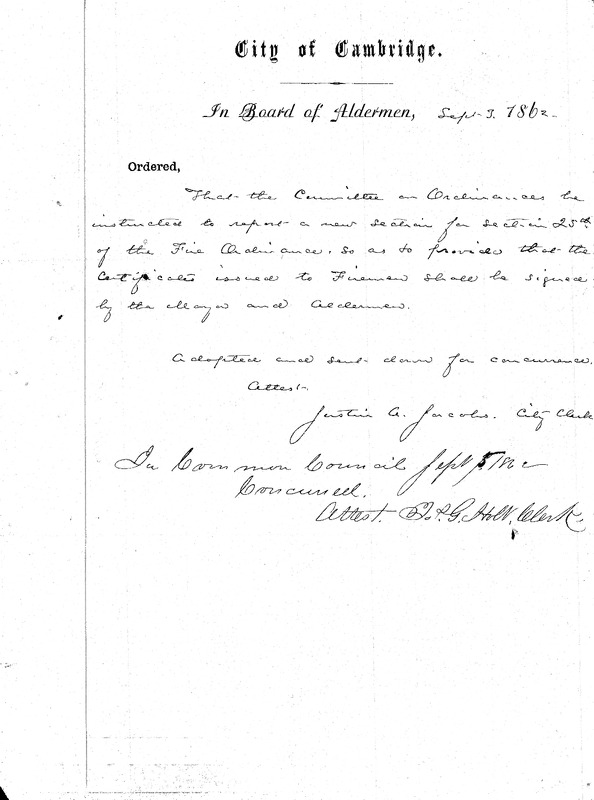 City of Cambridge.
In Board of Aldermen, Sept. 3. 1862.
Ordered,
That the Committee on Ordinances be
instructed to report a new section for section 25th
of the Fire Ordinance, so as to provide that the
Certificates issued to Firemen shall be signed
by the Mayor and Aldermen.
Adopted and sent down for concurrence.
Attest.
Justin A. Jacobs. City Clerk
In Common Council Sept 5 1862
Concurred.
Attest. G. Holt, Clerk.